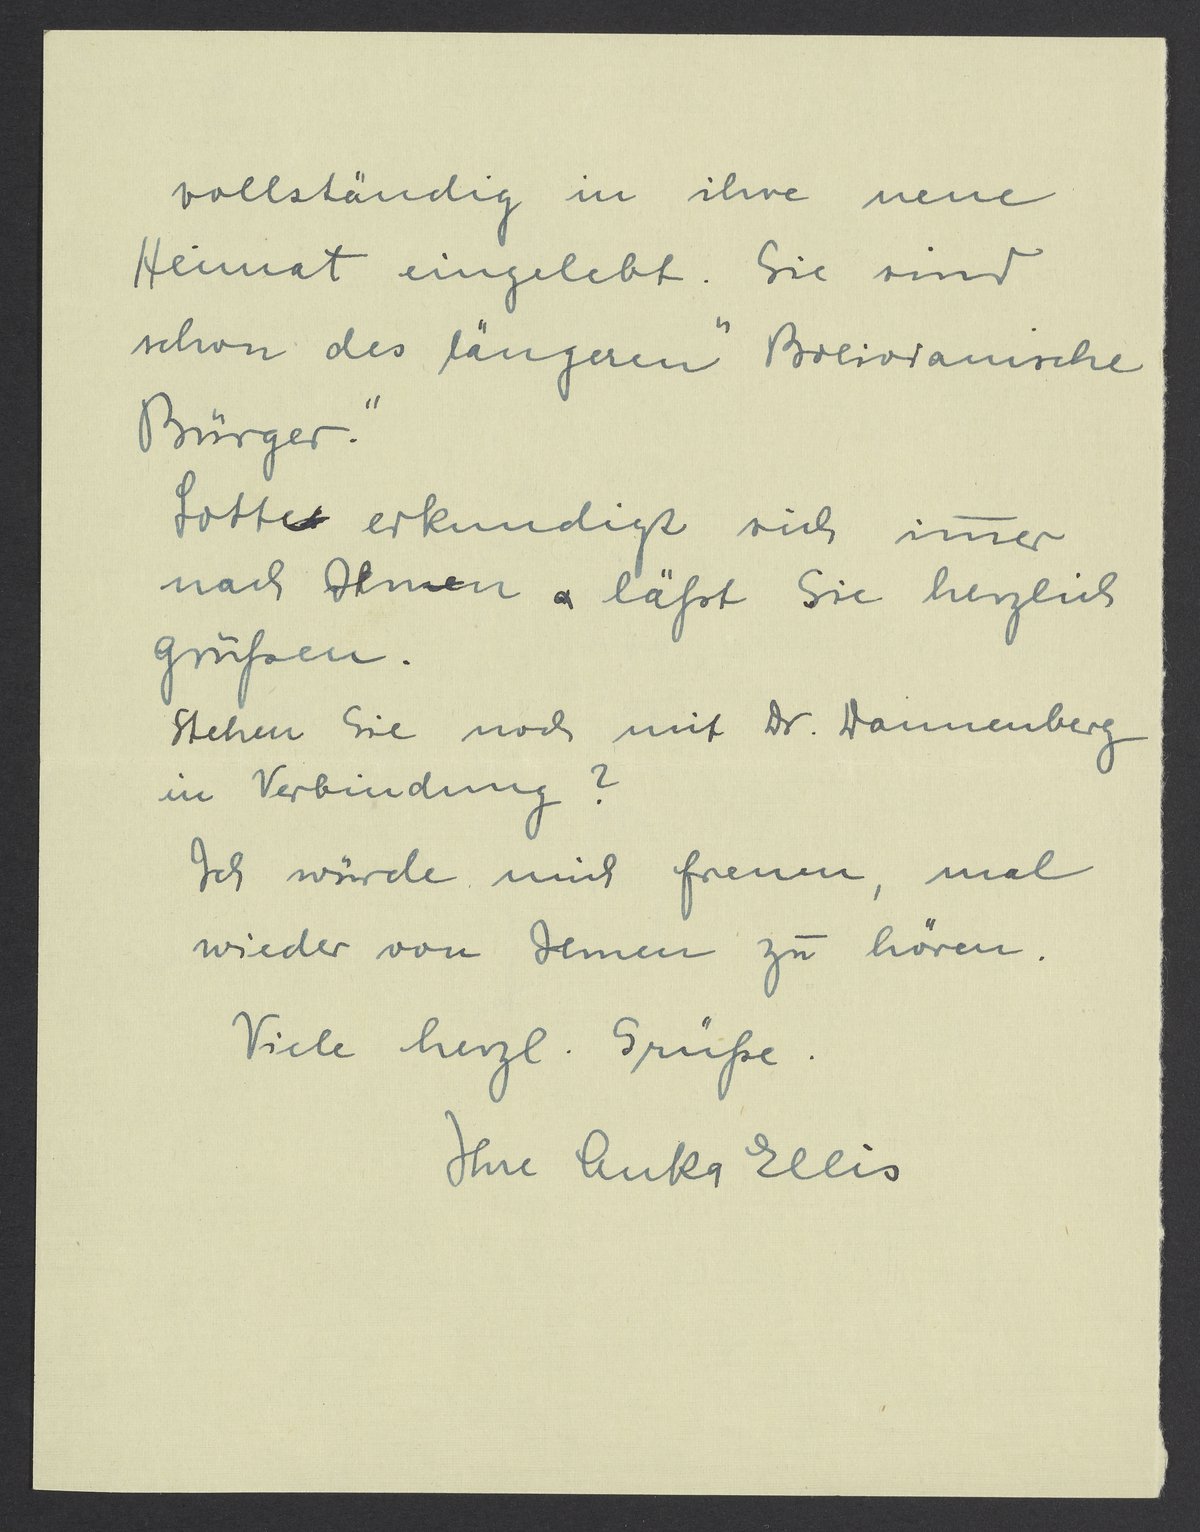 vollständig in ihre neue
Heimat eingelebt. Sie sind
schon des längeren "Bolivianische
Bürger."
Lotte erkundigt sich im̅er
nach Ihnen & läßt Sie herzlich
grüßen.
Stehen Sie noch mit Dr. Dannenberg
in Verbindung?
Ich würde mich freuen, mal
wieder von Ihnen zu hören.
Viele herzl. Grüße.
Ihre Anka Ellis